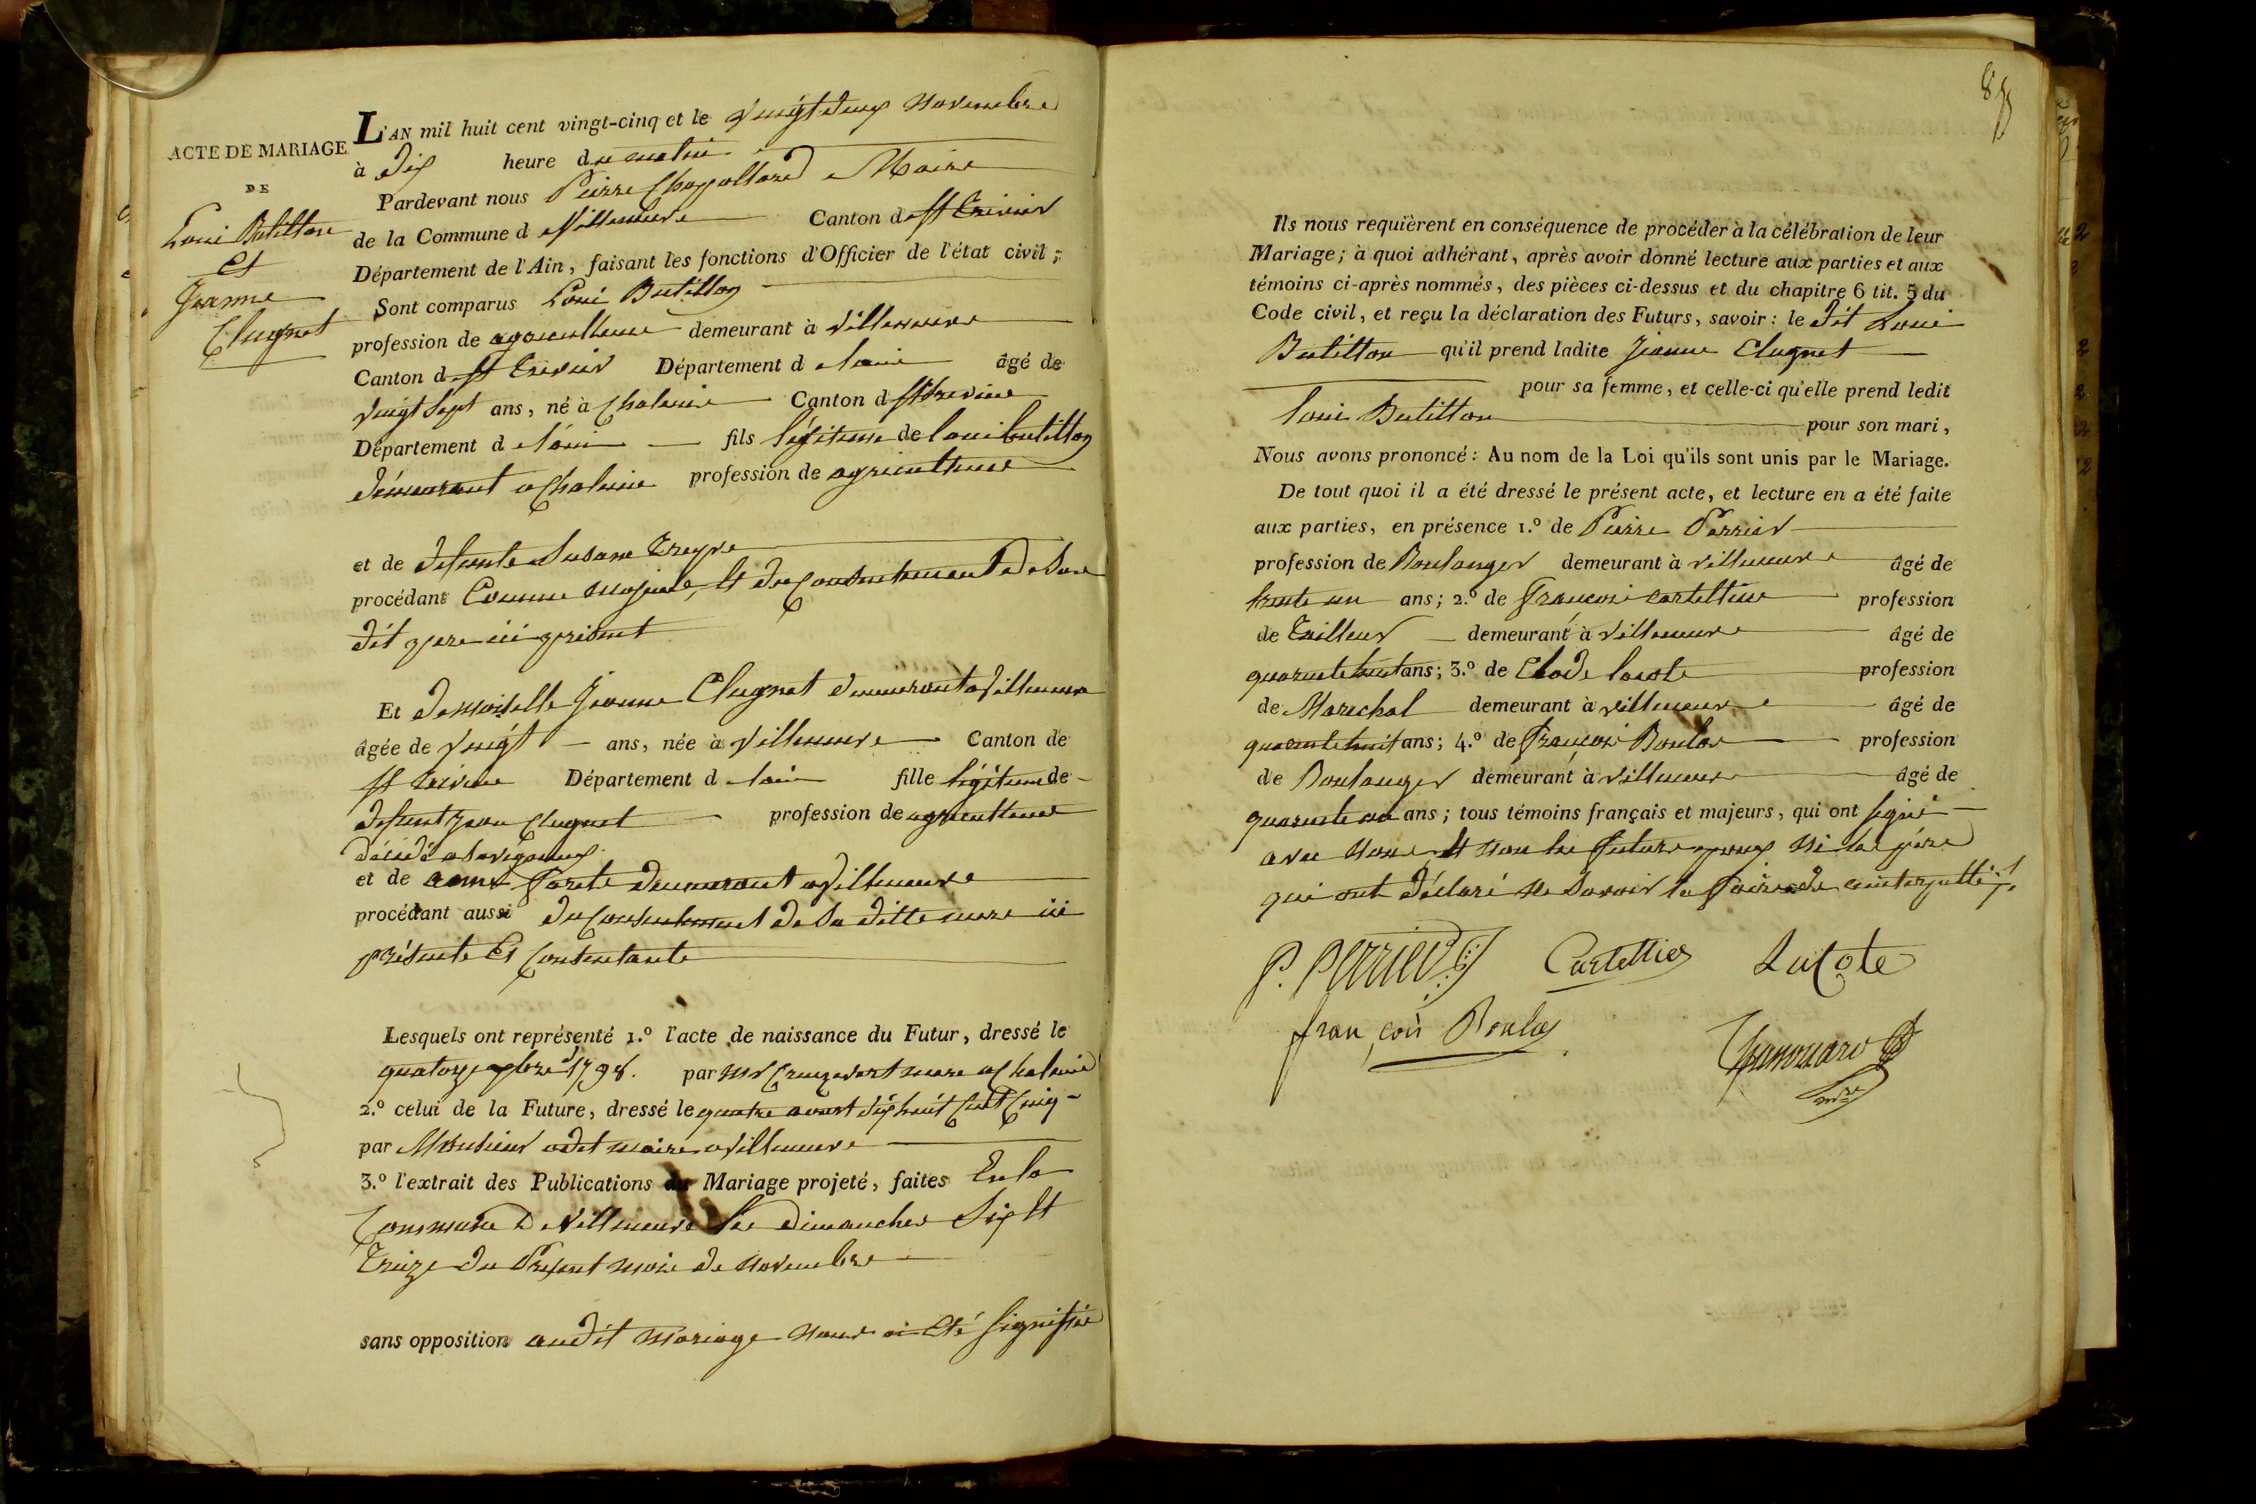 ACTE DE MARIAGE
DE
Loui Butillon
et
Jeanne
Clugnet
L'AN mil huit cent vingt-cinq et le vingt deux Novembre
à dix heure du matin
Pardevant nous Pierre Maire
de la Commune de Villeneuve Canton de St Trivier
Département de l'Ain, faisant les fonctions d'Officier de l'état civil;
Sont comparus Loui Butillon
profession de agriculteur demeurant à Villeneuve
Canton d St Trivier Département d l'ain âgé de
vingt sept ans, né à Chaleins Canton d St Trivier
Département d l'ain fils légitime de loui butillon
démeurant a Chaleins profession de agriculteur
et de defunte Susane
procédant Comme majeur, et du Consentement de Son
dit pere ici présent
Et demoiselle Jeanne Clugnet demeurant a Villeneuve
âgée de vingt ans, née à Villeneuve Canton de
St trivier Département d l'ain fille légitime de
defunt jean Clugnet profession de agriculteur
décédé a Savigneux
et de demeurant a Villeneuve
procédant aussi du Consentement de Sa ditte mere ici
présente Et Consentante
Lesquels ont représenté 1.º l'acte de naissance du Futur, dressé le
quatorze 1798. par Mr maire a Chaleins
2.º celui de la Future, dressé le quatre aoust dix huit Cent Cinq
par Monsieur odet maire a Villeneuve
3.º l'extrait des Publications du Mariage projeté, faites En la
Commune de Villeneuve les dimanches Six et
Treize du Présent mois de Novembre
sans opposition audit Mariage nous ai Eté Signifiée
Ils nous requièrent en conséquence de procéder à la célébration de leur
Mariage; à quoi adhérant, après avoir donné lecture aux parties et aux
témoins ci-après nommés, des pièces ci-dessus et du chapitre 6 tit. 5 du
Code civil, et reçu la déclaration des Futurs, savoir: le dit Loui
Butillon qu'il prend ladite Jeanne Clugnet
pour sa femme, et celle-ci qu'elle prend ledit
loui Butillon pour son mari,
Nous avons prononcé: Au nom de la Loi qu'ils sont unis par le Mariage.
De tout quoi il a été dressé le présent acte, et lecture en a été faite
aux parties, en présence 1.º de Pierre Perrier
profession de Boulanger demeurant à villeneuve âgé de
trente un ans; 2.º de François cartellier profession
de Tailleur demeurant à villeneuve âgé de
quarante huit ans; 3.º de Clode lacote profession
de Marechal demeurant à villeneuve âgé de
quarante huit ans; 4.º de François Boulas profession
de Boulanger demeurant à villeneuve âgé de
quarante ans; tous témoins français et majeurs, qui ont Signé
avec Nous et non les Future epoux ni le père
qui ont déclaré ne Savoir le faire de
P. Perrier
Cartellier
LaCote
françois Boulas